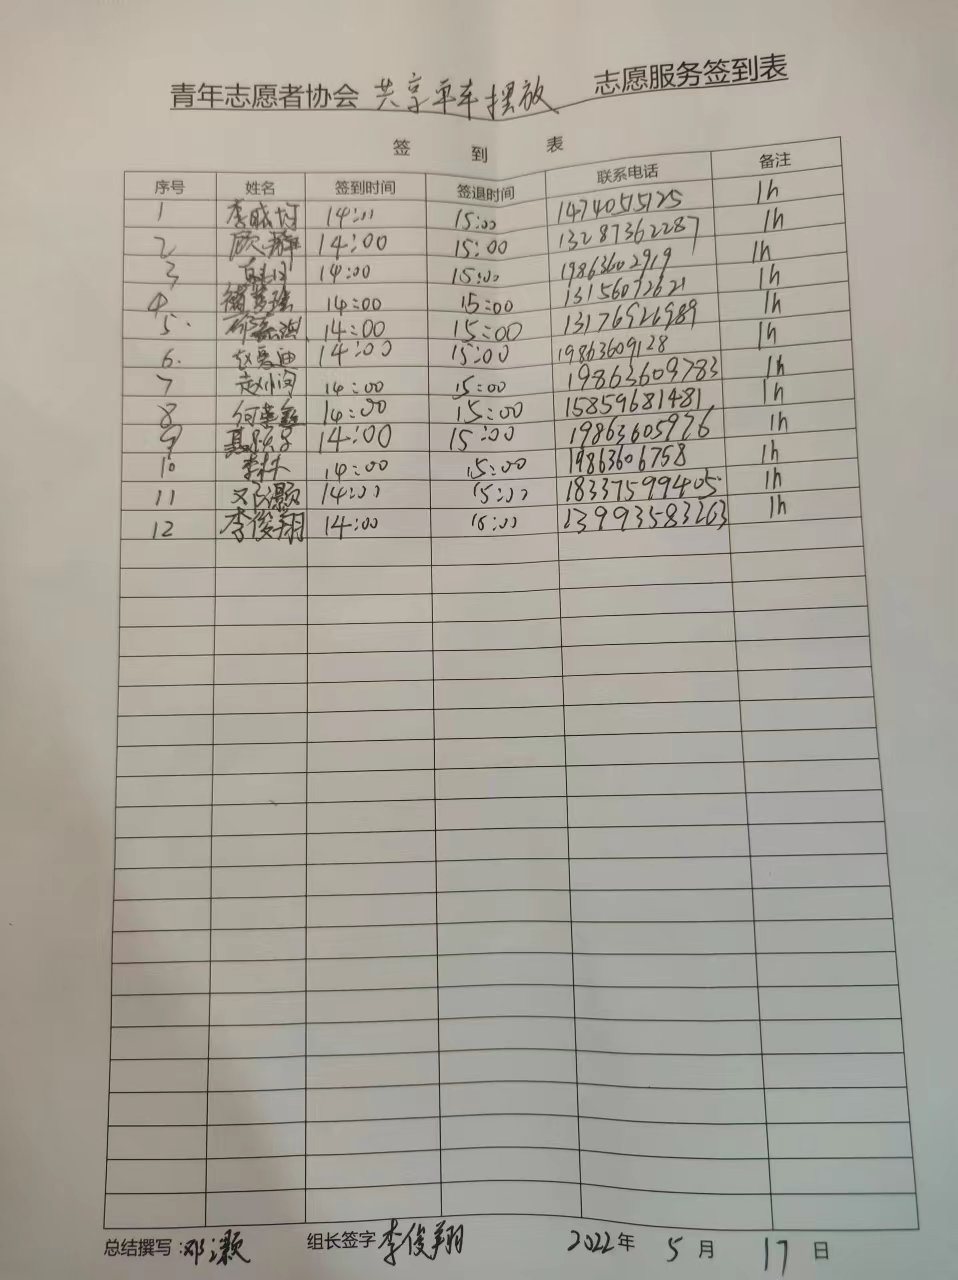 青年志愿者协会 共享单车摆放 志愿服务签到表
签 到 表
序号 姓名 签到时间 签退时间 联系电话 备注
1 14:00 15:00 14740515125 1h
2 14:00 15:00 13287362287 1h
3 14:00 15:00 19863602919 1h
4 14:00 15:00 13156072621 1h
5. 14:00 15:00 13176926989 1h
6. 赵夏迪 14:00 15:00 19863609128 1h
7 14:00 15:00 19863609783 1h
8 14:00 15:00 15859681481 1h
9 14:00 15:00 19863605976 1h
10 李林 14:00 15:00 19863606758 1h
11 邓灏颢 14:00 15:00 18337599405 1h
12 李俊翔 14:00 15:00 13993583263
总结撰写:邓灏颢 组长签字 李俊翔 2022年 5 月 17 日